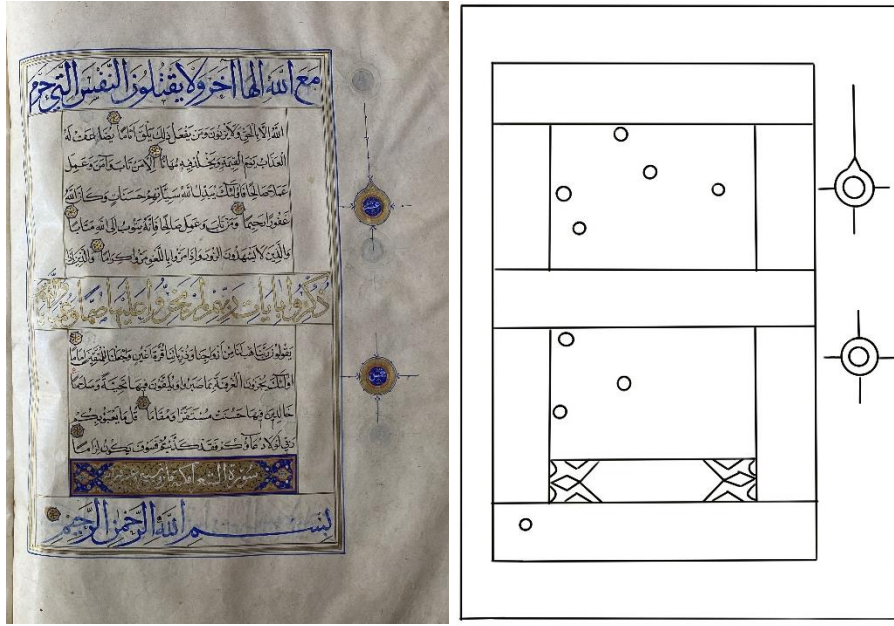 مع الله الها آخر ولا يقتلون النفس التي حرم
الله الا بالحق ولا يزنون ومن يفعل ذلك يلق اثاما يضاعف له
العذاب يوم القيمة ويخلد فيه مهانا الا من تاب وآمن وعمل
عملا صالحا فاولئك يبدل الله سيئاتهم حسنات وكان الله
غفورا رحيما ومن تاب وعمل صالحا فانه يتوب الى الله متابا
والذين لا يشهدون الزور واذا مروا باللغو مروا كراما والذين اذا
ذكروا بايات ربهم لم يخروا عليها صما وعميانا
يقولون ربنا هب لنا من ازواجنا وذرياتنا قرة اعين واجعلنا للمتقين اماما
اولئك يجزون الغرفة بما صبروا ويلقون فيها تحية وسلاما
خالدين فيها حسنت مستقرا ومقاما قل ما يعبؤ بكم
ربي لولا دعاؤكم فقد كذبتم فسوف يكون لزاما
سورة الشعرا
بسم الله الرحمن الرحيم
عشر
خمس